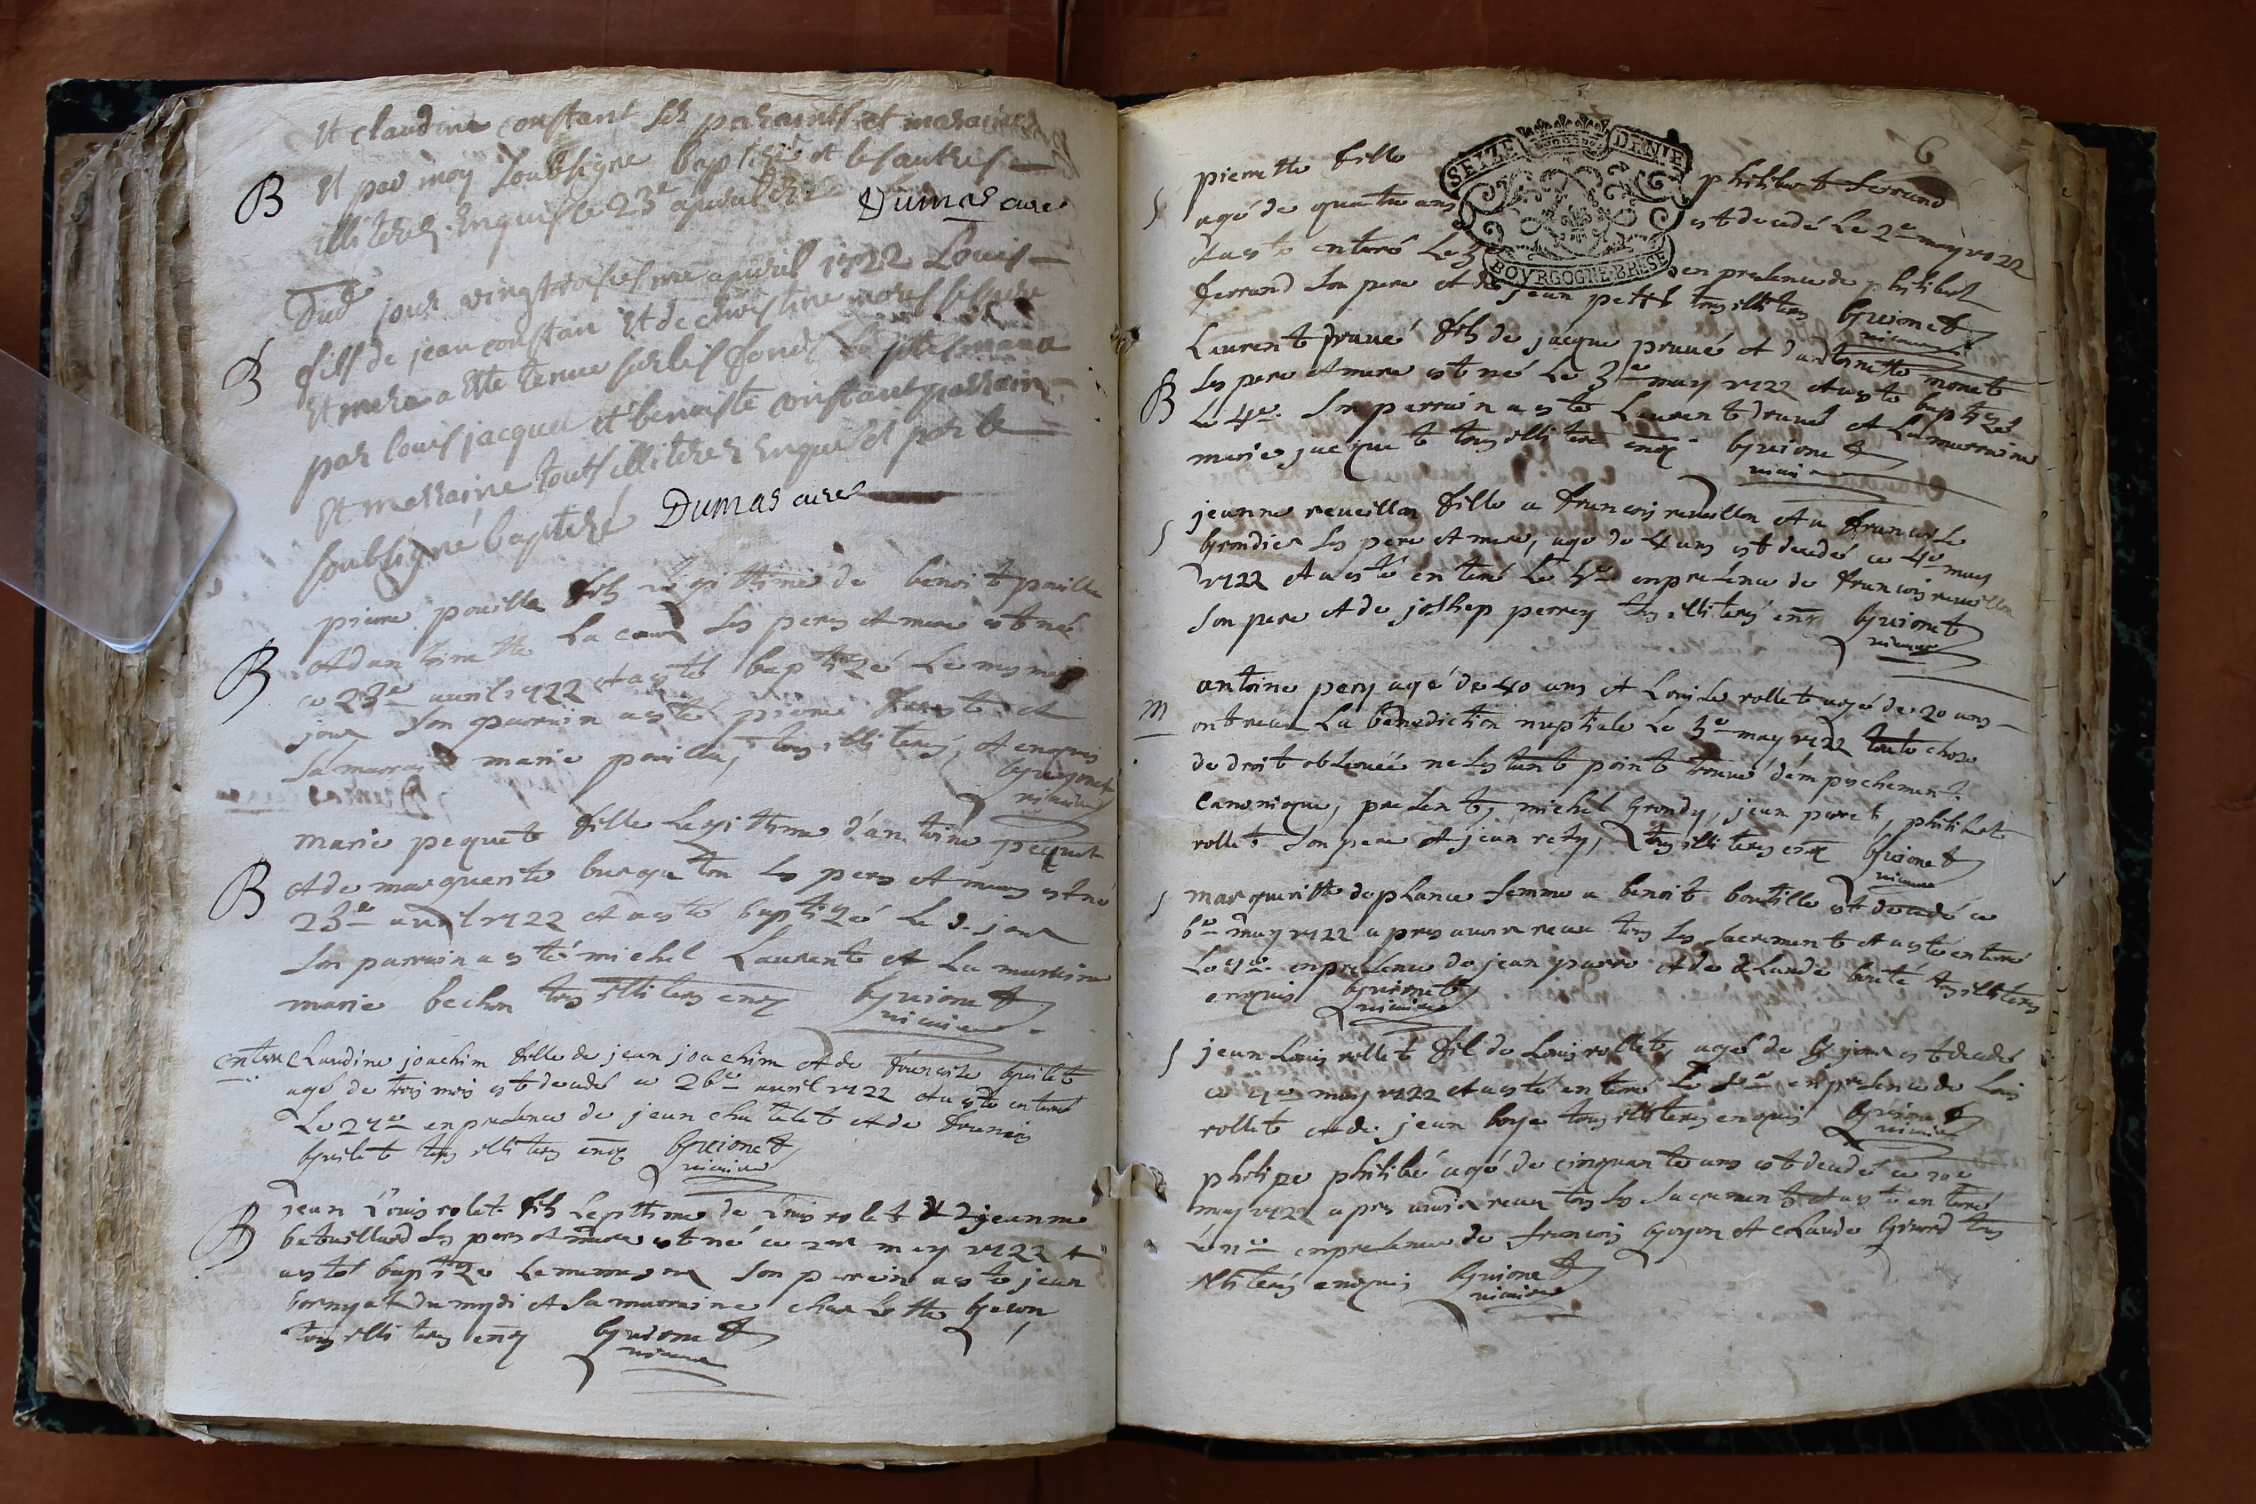 et claudine constant ses parains et maraines
B
et par moy soubsigne baptizé et les autres
illiterez enquis le 23e apvril 1722 Dumas curé
Dud jour vingtroisiesme apvril 1722 Louis
B
fils de jean constan et de christine mores ses pere
et mere a este tenue sur les fonds baptesmaux
par louis jacquet et benoiste constant parrain
et marraine touts illiterez enquis et par le
soubsigné baptizé Dumas curé
pierre pouilla fils legittime de benoit pouilla
B
Et dantoinette La cour Les peres et mere est née
ce 23e avril 1722 et a esté baptizé Le mesme
jour Son parrain a esté pierre et
Sa marraine marie pouilla, tous illiterés, et enquis
Guionet
vicaire
marie pequet fille Legittime d'antoine pequet
B
Et de marguerite burgutton Les peres et meres est né
23e avril 1722 et a esté baptizé Le d. jour
Son parrain a esté michel Laurent et La marraine
marie bechon tous illiteres enq Guionet
vicaire
enterr Claudine joachim fille de jean joachim et de francoise Guilet
agé de trois mois est decedé ce 26e avril 1722 et a esté enterré
Le 27e en presence de jean chatelet et de francois
Guilet tous illiteres enq Guionet
vicaire
B
jean Louis rolet fils Legittime de Louis rolet et de jeanne
betuillard Les peres et mere est né ce 1er may 1722 et
a esté baptizé Le mesme jour Son parrein a esté jean
bornyat du mydi et Sa marraine charlotte Geon,
tous illiteres enq Guionet
vicaire
6
SEIZE DENIE
BOVRGOGNE BRESE
S
pierrette fille philibert ferrand
agé de quatre ans est decedé Le 2e may 1722
et a esté enterré Le 3 en presence de philibert
ferrand Son pere et de jean petit tous illiteres Guionet
vicaire
Laurent pruué fils de jacque pruué et d'antoinette monet
B
Les pere et mere est né Le 3e may 1722 et a esté baptizé
Le 4e. Son parrain a esté Laurent pruué et La marraine
marie jacquet tous illiteres enq Guionet
vicaire
S
jeanne reveillon fille a francois reveillon et a francoise
Grondier Les pere et mere, agé de 4 ans est decedé ce 4e may
1722 et a esté enterré Le 5e en presence de francois reveillon
Son pere et de joshep perrey tous illiterés enq Guionet
vicaire
M
antoine pery agé de 40 ans et Louise rollet agé de 20 ans
ont receu La benediction nuptiale Le 5e may 1722 toute chose
de droit observée ne Sestant point trouvé d'empeschement
canonique, present, michel Grondy, jean perret, philibert
rollet Son pere et jean rety, tous illiteres enq Guionet
vicaire
S
margueritte deplance femme a benoit boutille est decedé ce
6e may 1722 apres avoir receu tous Les Sacrement et a esté enterré
Le 7e en presence de jean parra et de Claude berité tous illiterés
enquis Guionet
vicaire
S
jean Louis rollet fil de Louis rollet, agé de 6 jour est decedé
ce 7e may 1722 et a esté enterré Le 8e en presence de Louis
rollet et de jean boye tous illiteres enquis Guionet
vicaire
philipe philibé agé de cinquante ans est decedé ce 10e
may 1722 apres avoir receu tous Les Sacrement et a esté enterré
Le 11e en presence de francois Goyon et Claude Girard tous
illiterés enquis Guionet
vicaire